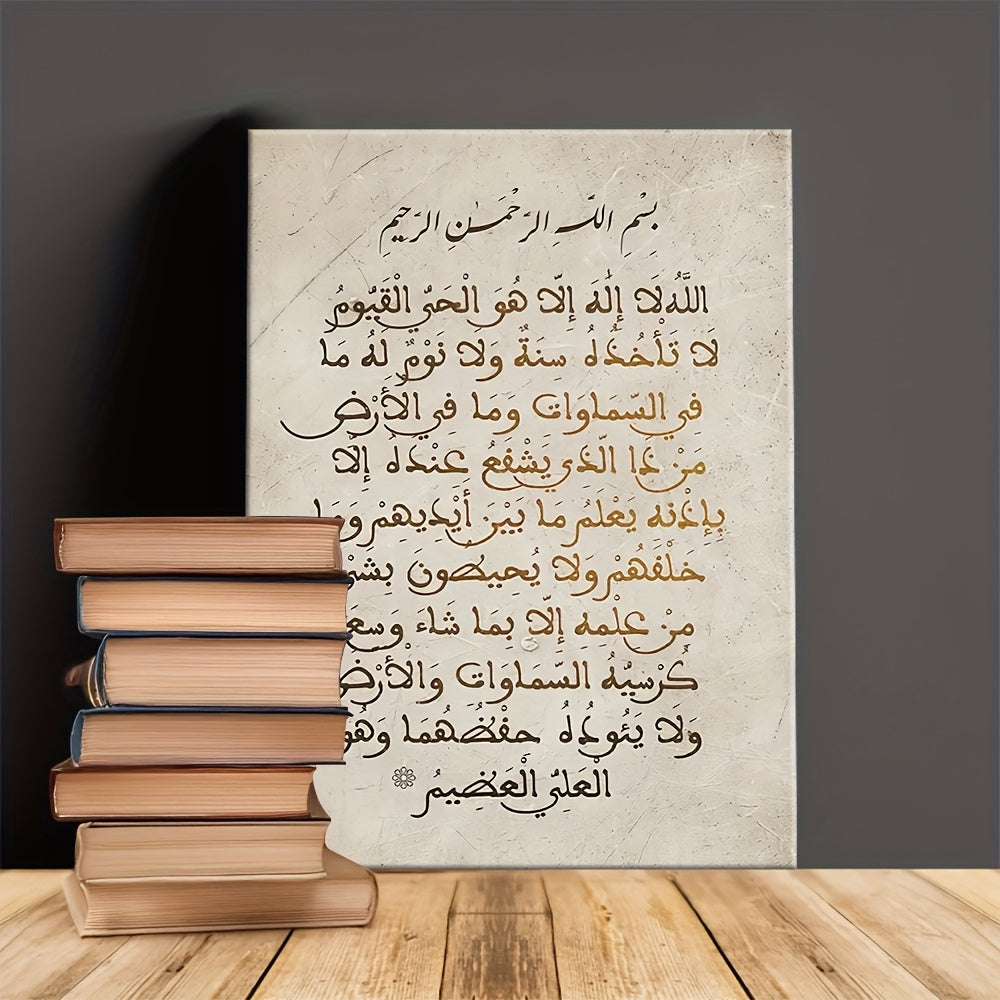 بِسْمِ اللَّهِ الرَّحْمَٰنِ الرَّحِيمِ
اللَّهُ لَا إِلَٰهَ إِلَّا هُوَ الْحَيُّ الْقَيُّومُ
لَا تَأْخُذُهُ سِنَةٌ وَلَا نَوْمٌ لَهُ مَا
فِي السَّمَاوَاتِ وَمَا فِي الْأَرْضِ
مَنْ ذَا الَّذِي يَشْفَعُ عِنْدَهُ إِلَّا
بِإِذْنِهِ يَعْلَمُ مَا بَيْنَ أَيْدِيهِمْ وَمَا
خَلْفَهُمْ وَلَا يُحِيطُونَ
مِنْ عِلْمِهِ إِلَّا بِمَا شَاءَ وَسِعَ
كُرْسِيُّهُ السَّمَاوَاتِ وَالْأَرْضَ
وَلَا يَئُودُهُ حِفْظُهُمَا وَهُوَ
الْعَلِيُّ الْعَظِيمُ